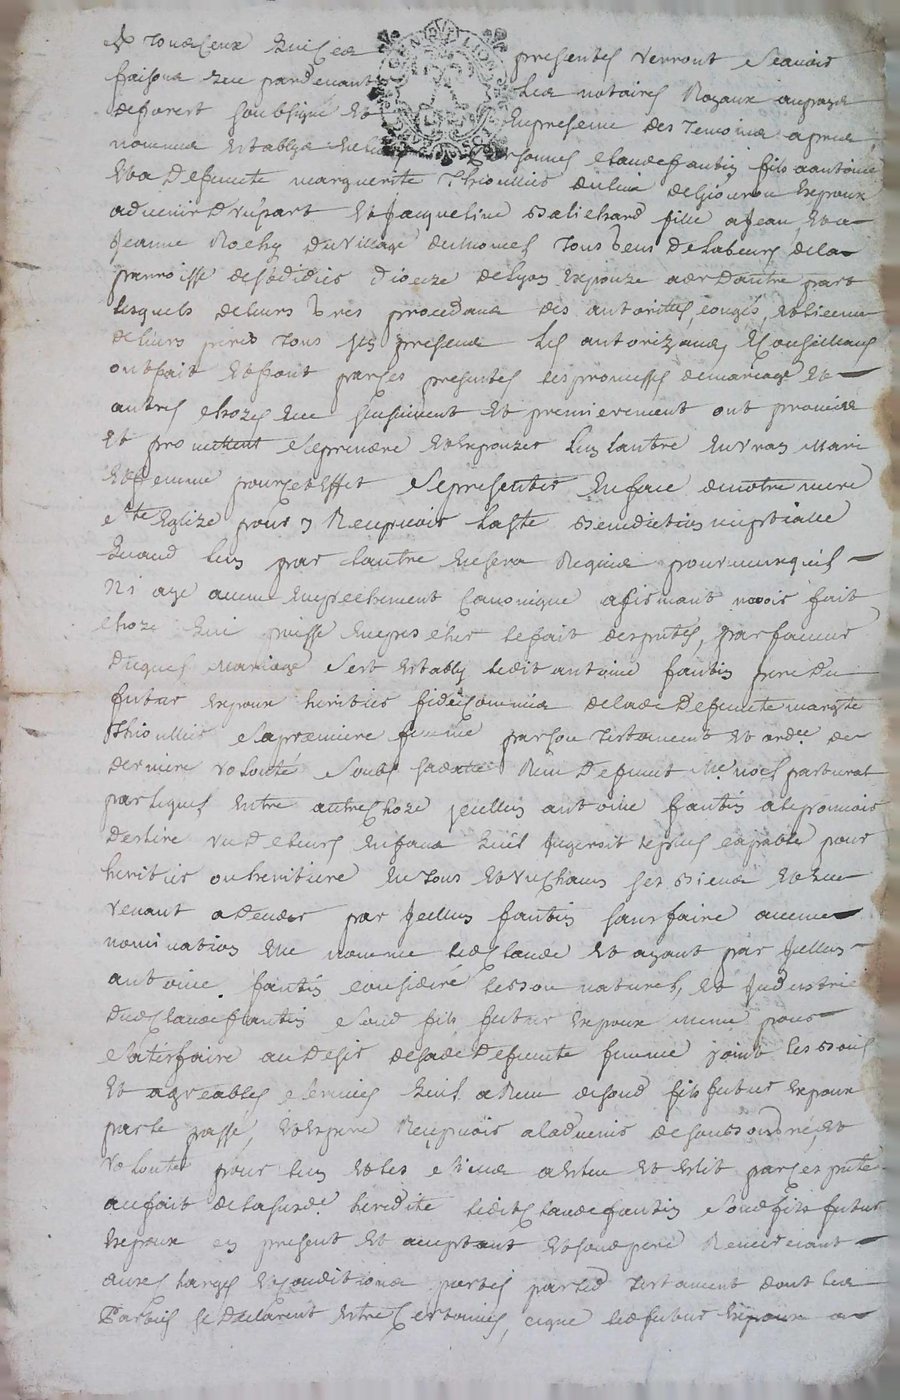 A tous ceux qui ces presentes verront scavoir
faisons que pardevant les notaires Royaux au pays
de forest soubsigné et en presence des temoins apres
nommes establys en leurs personnes Claude fantin fils a antoine
et a defunte marguerite Thioullier du lieu de epoux
advenir d'une part et Jacqueline fille a Jean et a
Jeanne Rochy du village de tous deux de labeurs de la
parroisse de st didier dioceze de lyon espouze a adr d'autre part
lesquels de leurs grez procedans des autorités, congés, et licence
de leurs peres tous icy presens les autorizans, et conseillans
ont fait et font par ces presentes les promesses de mariage et
autres chozes que sensuivent et premierement ont promis
et promettent se prendre et espouzer lun lautre en vray mari
et femme pour cet effet se presenter en face de notre mere
ste Eglize pour y recepvoir la ste benediction nuptialle
quand lun par lautre en sera requis pourveu quil
ni aye aucun empeschement canonique afirmant navoir fait
choze qui puisse empescher le fait des pntes, par faveur
duquel mariage sest estably ledit antoine fantin pere du
futur espoux heritier fideicommis de lade defunte margte
Thioullier sa premiere femme par son testament et ordce de
derniere volonté soubs sa datte Receu defunt Me noel parturat
par lequel entre autre choze icelluy antoine fantin a le pouvoir
deslire un de leurs enfans quil jugeroit le plus capable pour
heritier ou heritiere en tous et ung chacun ses biens et que
venant a deceder par icelluy fantin sans faire aucune
nomination elle nomme led Claude et ayant par icelluy
antoine fantin consideré le bon naturel, et industrie
dud Claude fantin soud fils futur espoux mesme pour
satisfaire au desir de sade defunte femme joint les bons
et agreables services quil a Receu de soud fils futur espoux
par le passé, et espere Recepvoir a ladvenir de sont bon gré, et
volonté pour luy et les siens a esleu et eslit par ces pntes
au fait de la susde heredité ledit Claude fantin soud fils futur
espoux cy present et acceptant et soud pere Remerciant
aux charges et conditions portés par led testament dont les
parties se declarent estre certaines, et que led futur espoux a